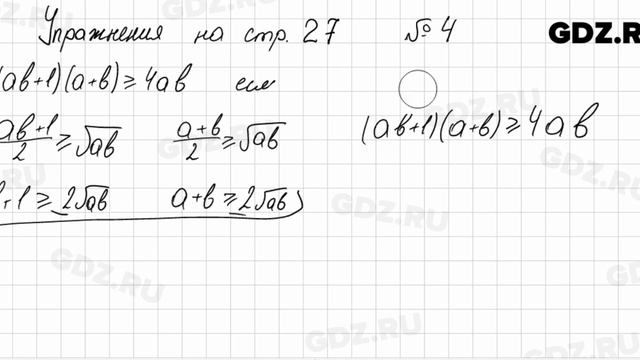 Упражнения на стр. 27 № 4
GDZ.RU
(ab+1)(a+b)≥4ab если
ab+1/2 ≥ √ab a+b/2 ≥ √ab
(ab+1)(a+b)≥4ab
b+1 ≥ 2√ab a+b ≥ 2√ab)
GDZ.RU
GDZ.RU
GDZ.RU
GDZ.RU